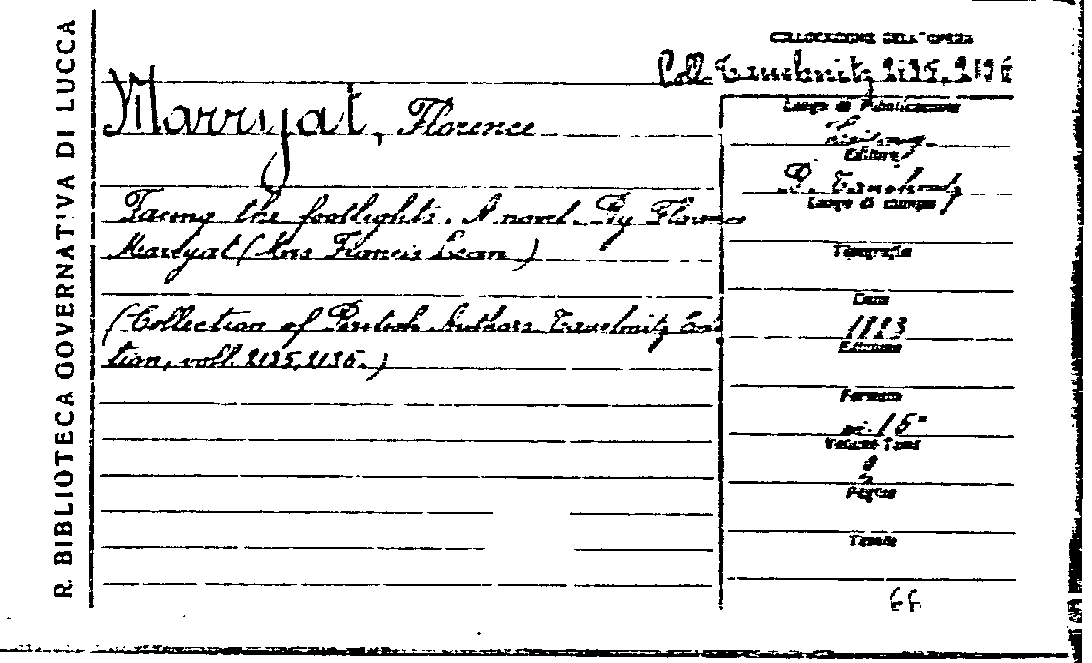 R. BIBLIOTECA GOVERNATIVA DI LUCCA
COLLOCAZIONE DELL'OPERA
Coll. Tauchnitz 2135, 2136
Marryat, Florence
Facing the footlights. A novel. By Florence
Marryat (Mrs Francis Lean)
(Collection of British Authors Tauchnitz Edi-
tion, voll. 2135, 2136.)
Luogo di Pubblicazione
Editore
B. Tauchnitz
Luogo di stampa
Tipografia
Data
1883
Edizione
Formato
in-16°
Volumi Tomi
2
Pagine
Tavole
66